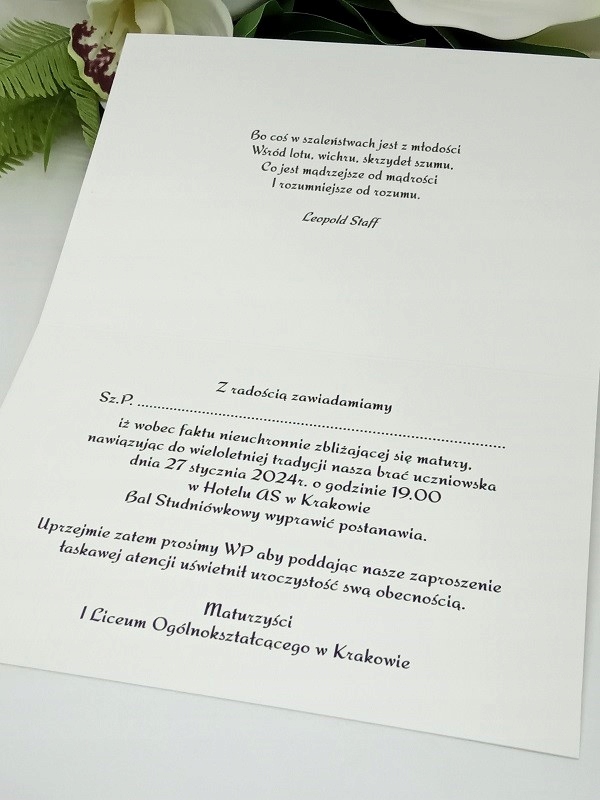 Bo coś w szaleństwach jest z młodości
Wśród lotu, wichru, skrzydeł szumu,
Co jest mądrzejsze od mądrości
I rozumniejsze od rozumu.
Leopold Staff
Z radością zawiadamiamy
Sz.P. ................................................................
iż wobec faktu nieuchronnie zbliżającej się matury,
nawiązując do wieloletniej tradycji nasza brać uczniowska
dnia 27 stycznia 2024r. o godzinie 19.00
w Hotelu AS w Krakowie
Bal Studniówkowy wyprawić postanawia.
Uprzejmie zatem prosimy WP aby poddając nasze zaproszenie
łaskawej atencji uświetnił uroczystość swą obecnością.
Maturzyści
I Liceum Ogólnokształcącego w Krakowie